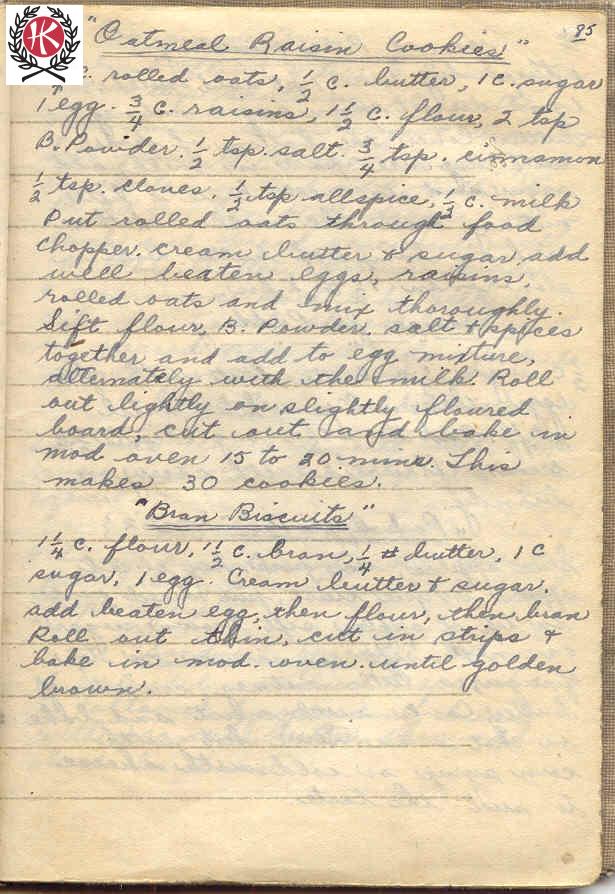 95
"Oatmeal Raisin Cookies"
c. rolled oats, 1/2 c. butter, 1 c. sugar
1 egg. 3/4 c. raisins, 1 1/2 c. flour, 2 tsp
B. Powder. 1/2 tsp. salt. 3/4 tsp. cinnamon
1/2 tsp. cloves. 1/2 tsp allspice, 1/2 c. milk
Put rolled oats through food
chopper. cream butter & sugar, add
well beaten eggs, raisins,
rolled oats and mix thoroughly.
Sift flour, B. Powder. salt & spices
together and add to egg mixture,
alternately with the milk. Roll
out lightly on slightly floured
board, cut out and bake in
mod oven 15 to 20 mins. This
makes 30 cookies.
"Bran Biscuits"
1 1/4 c. flour, 1 1/2 c. bran, 1/4 # butter, 1 c
sugar, 1 egg. Cream butter & sugar.
add beaten egg, then flour, then bran
Roll out thin, cut in strips &
bake in mod. oven. until golden
brown.